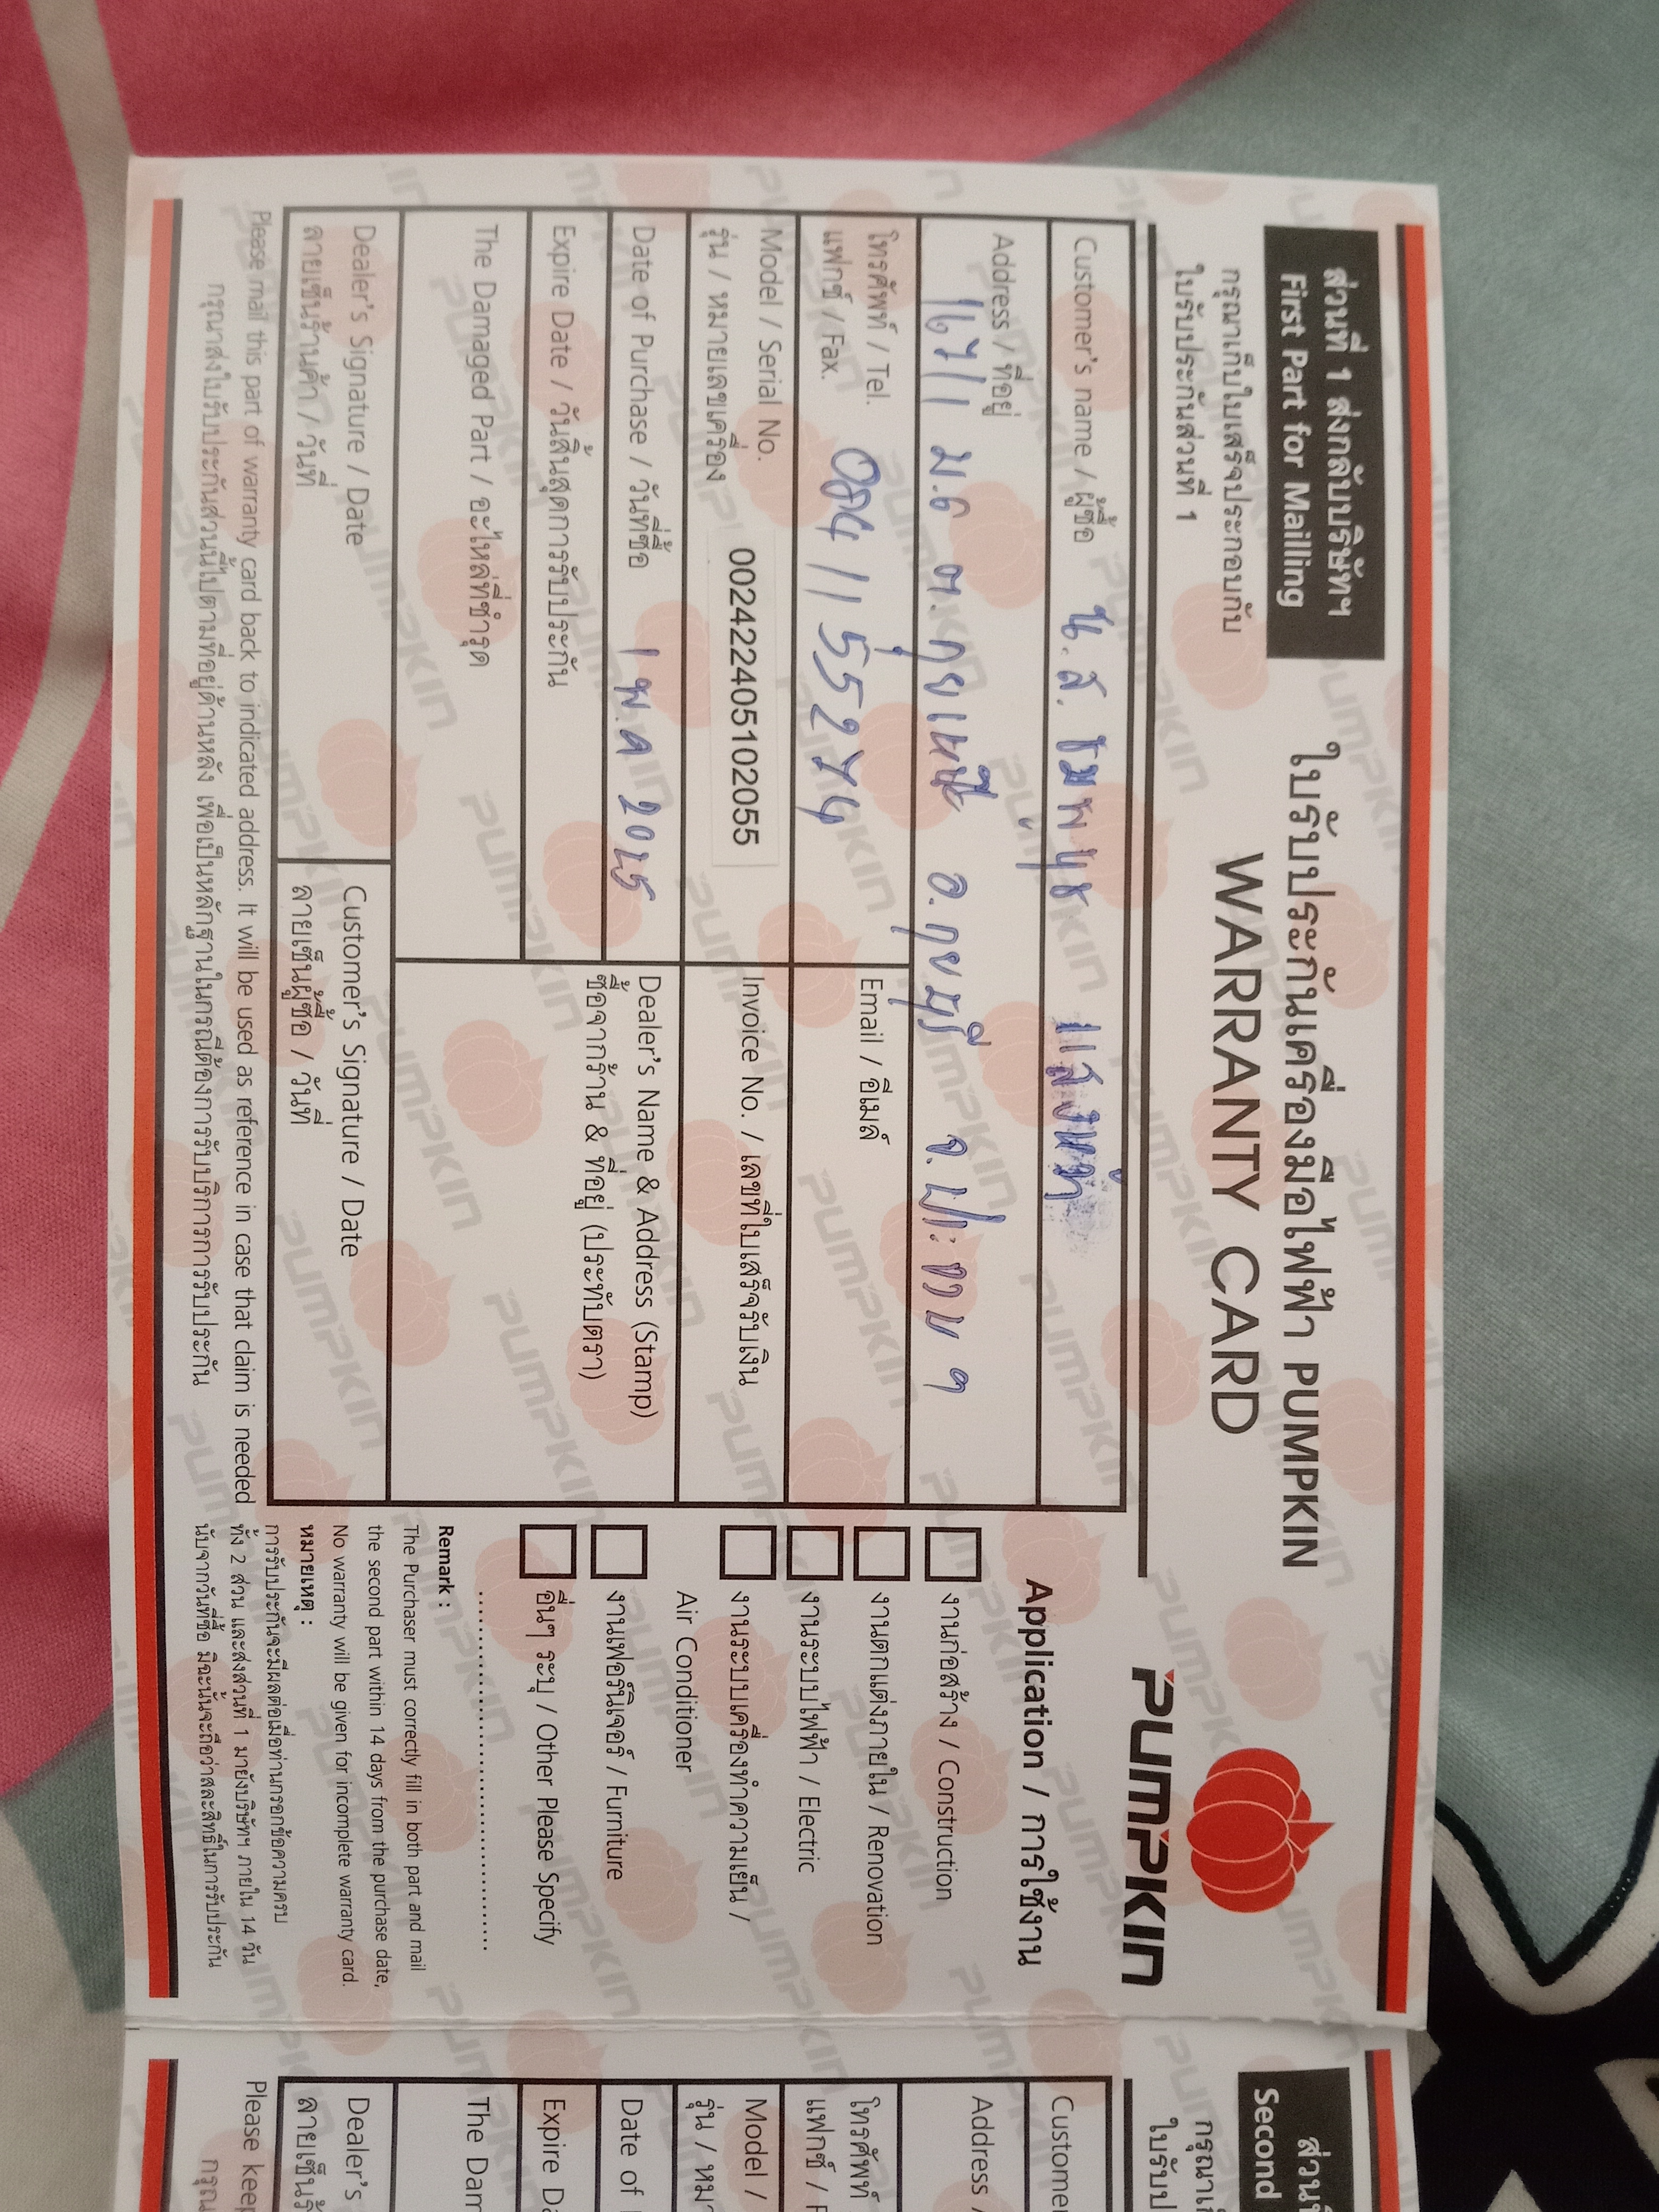 ส่วนที่ 1 ส่งกลับบริษัทฯ
First Part for Mailling
กรุณาเก็บใบเสร็จประกอบกับ
ใบรับประกันส่วนที่ 1
ใบรับประกันเครื่องมือไฟฟ้า PUMPKIN
WARRANTY CARD
PUMPKIN
Customer's name / ผู้ซื้อ น.ส. ชมพนุช แสงหน้า
Address / ที่อยู่
167/1 ม.6 ต.กุยเหนือ อ.กุยบุรี จ.ประจวบ ฯ
โทรศัพท์ / Tel.
แฟกซ์ / Fax.
084 11 55274
Email / อีเมล์
Model / Serial No.
รุ่น / หมายเลขเครื่อง
002422405102055
Invoice No. / เลขที่ใบเสร็จรับเงิน
Date of Purchase / วันที่ซื้อ 1 พ.ค 2025
Expire Date / วันสิ้นสุดการรับประกัน
Dealer's Name & Address (Stamp)
ซื้อจากร้าน & ที่อยู่ (ประทับตรา)
The Damaged Part / อะไหล่ที่ชำรุด
Dealer's Signature / Date
ลายเซ็นร้านค้า / วันที่
Customer's Signature / Date
ลายเซ็นผู้ซื้อ / วันที่
Please mail this part of warranty card back to indicated address. It will be used as reference in case that claim is needed
กรุณาส่งใบรับประกันส่วนนี้ไปตามที่อยู่ด้านหลัง เพื่อเป็นหลักฐานในกรณีต้องการรับบริการการรับประกัน
Application / การใช้งาน
งานก่อสร้าง / Construction
งานตกแต่งภายใน / Renovation
งานระบบไฟฟ้า / Electric
งานระบบเครื่องทำความเย็น /
Air Conditioner
งานเฟอร์นิเจอร์ / Furniture
อื่นๆ ระบุ / Other Please Specify
Remark :
The Purchaser must correctly fill in both part and mail
the second part within 14 days from the purchase date,
No warranty will be given for incomplete warranty card.
หมายเหตุ :
การรับประกันจะมีผลต่อเมื่อท่านกรอกข้อความครบ
ทั้ง 2 ส่วน และส่งส่วนที่ 1 มายังบริษัทฯ ภายใน 14 วัน
นับจากวันที่ซื้อ มิฉะนั้นจะถือว่าสละสิทธิ์ในการรับประกัน
Second
Address /
โทรศัพท์
แฟกซ์ /
Model /
Date of
Dealer's
Please keep